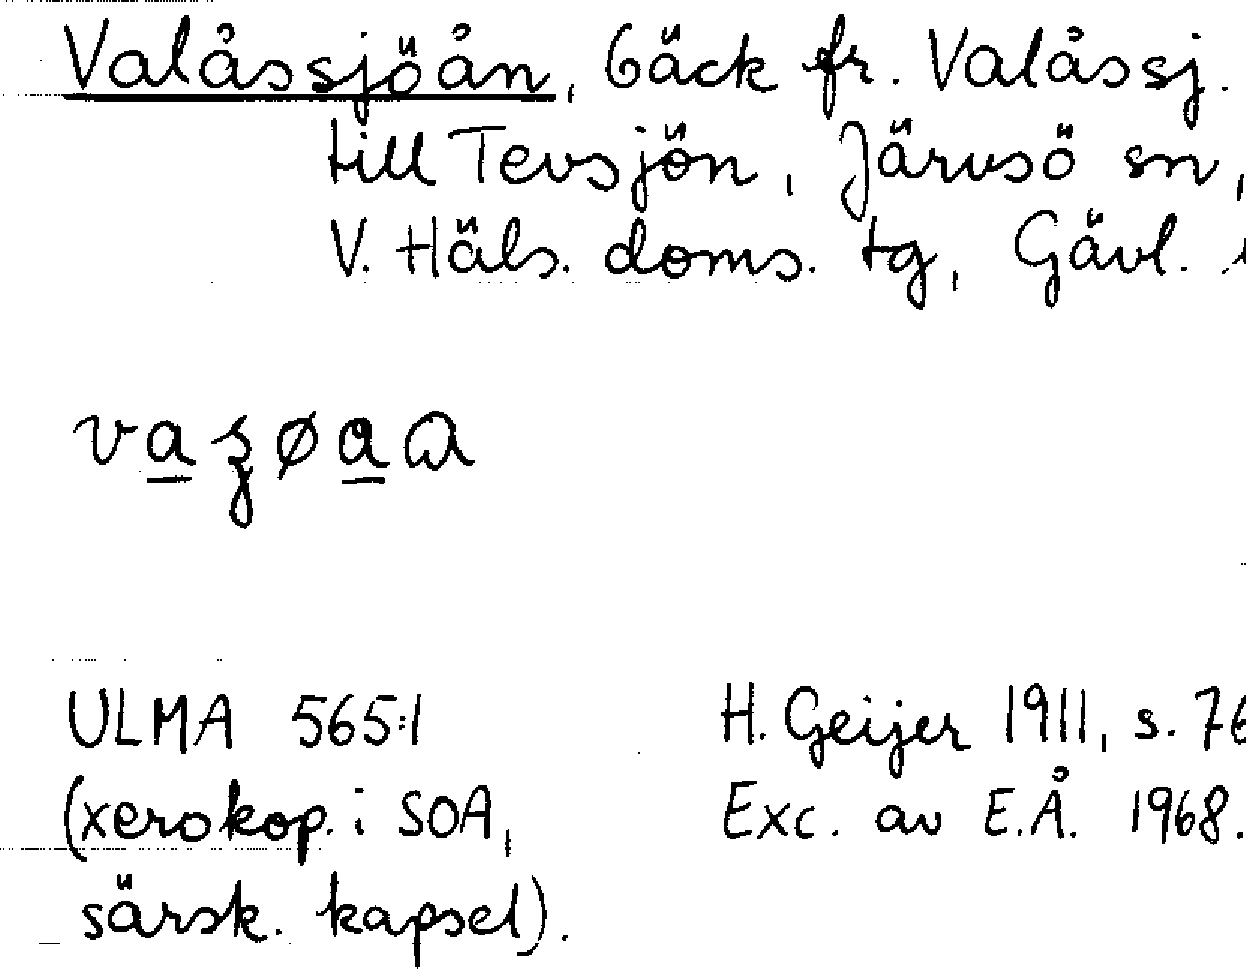 Valåssjöån, bäck fr. Valåssj.
till Tevsjön, Järvsö sn,
V. Häls. doms. tg, Gävl.
ULMA 565:1
H. Geijer 1911, s. 76
(xerokop. i SOA,
Exc. av E.Å. 1968.
särsk. kapsel).